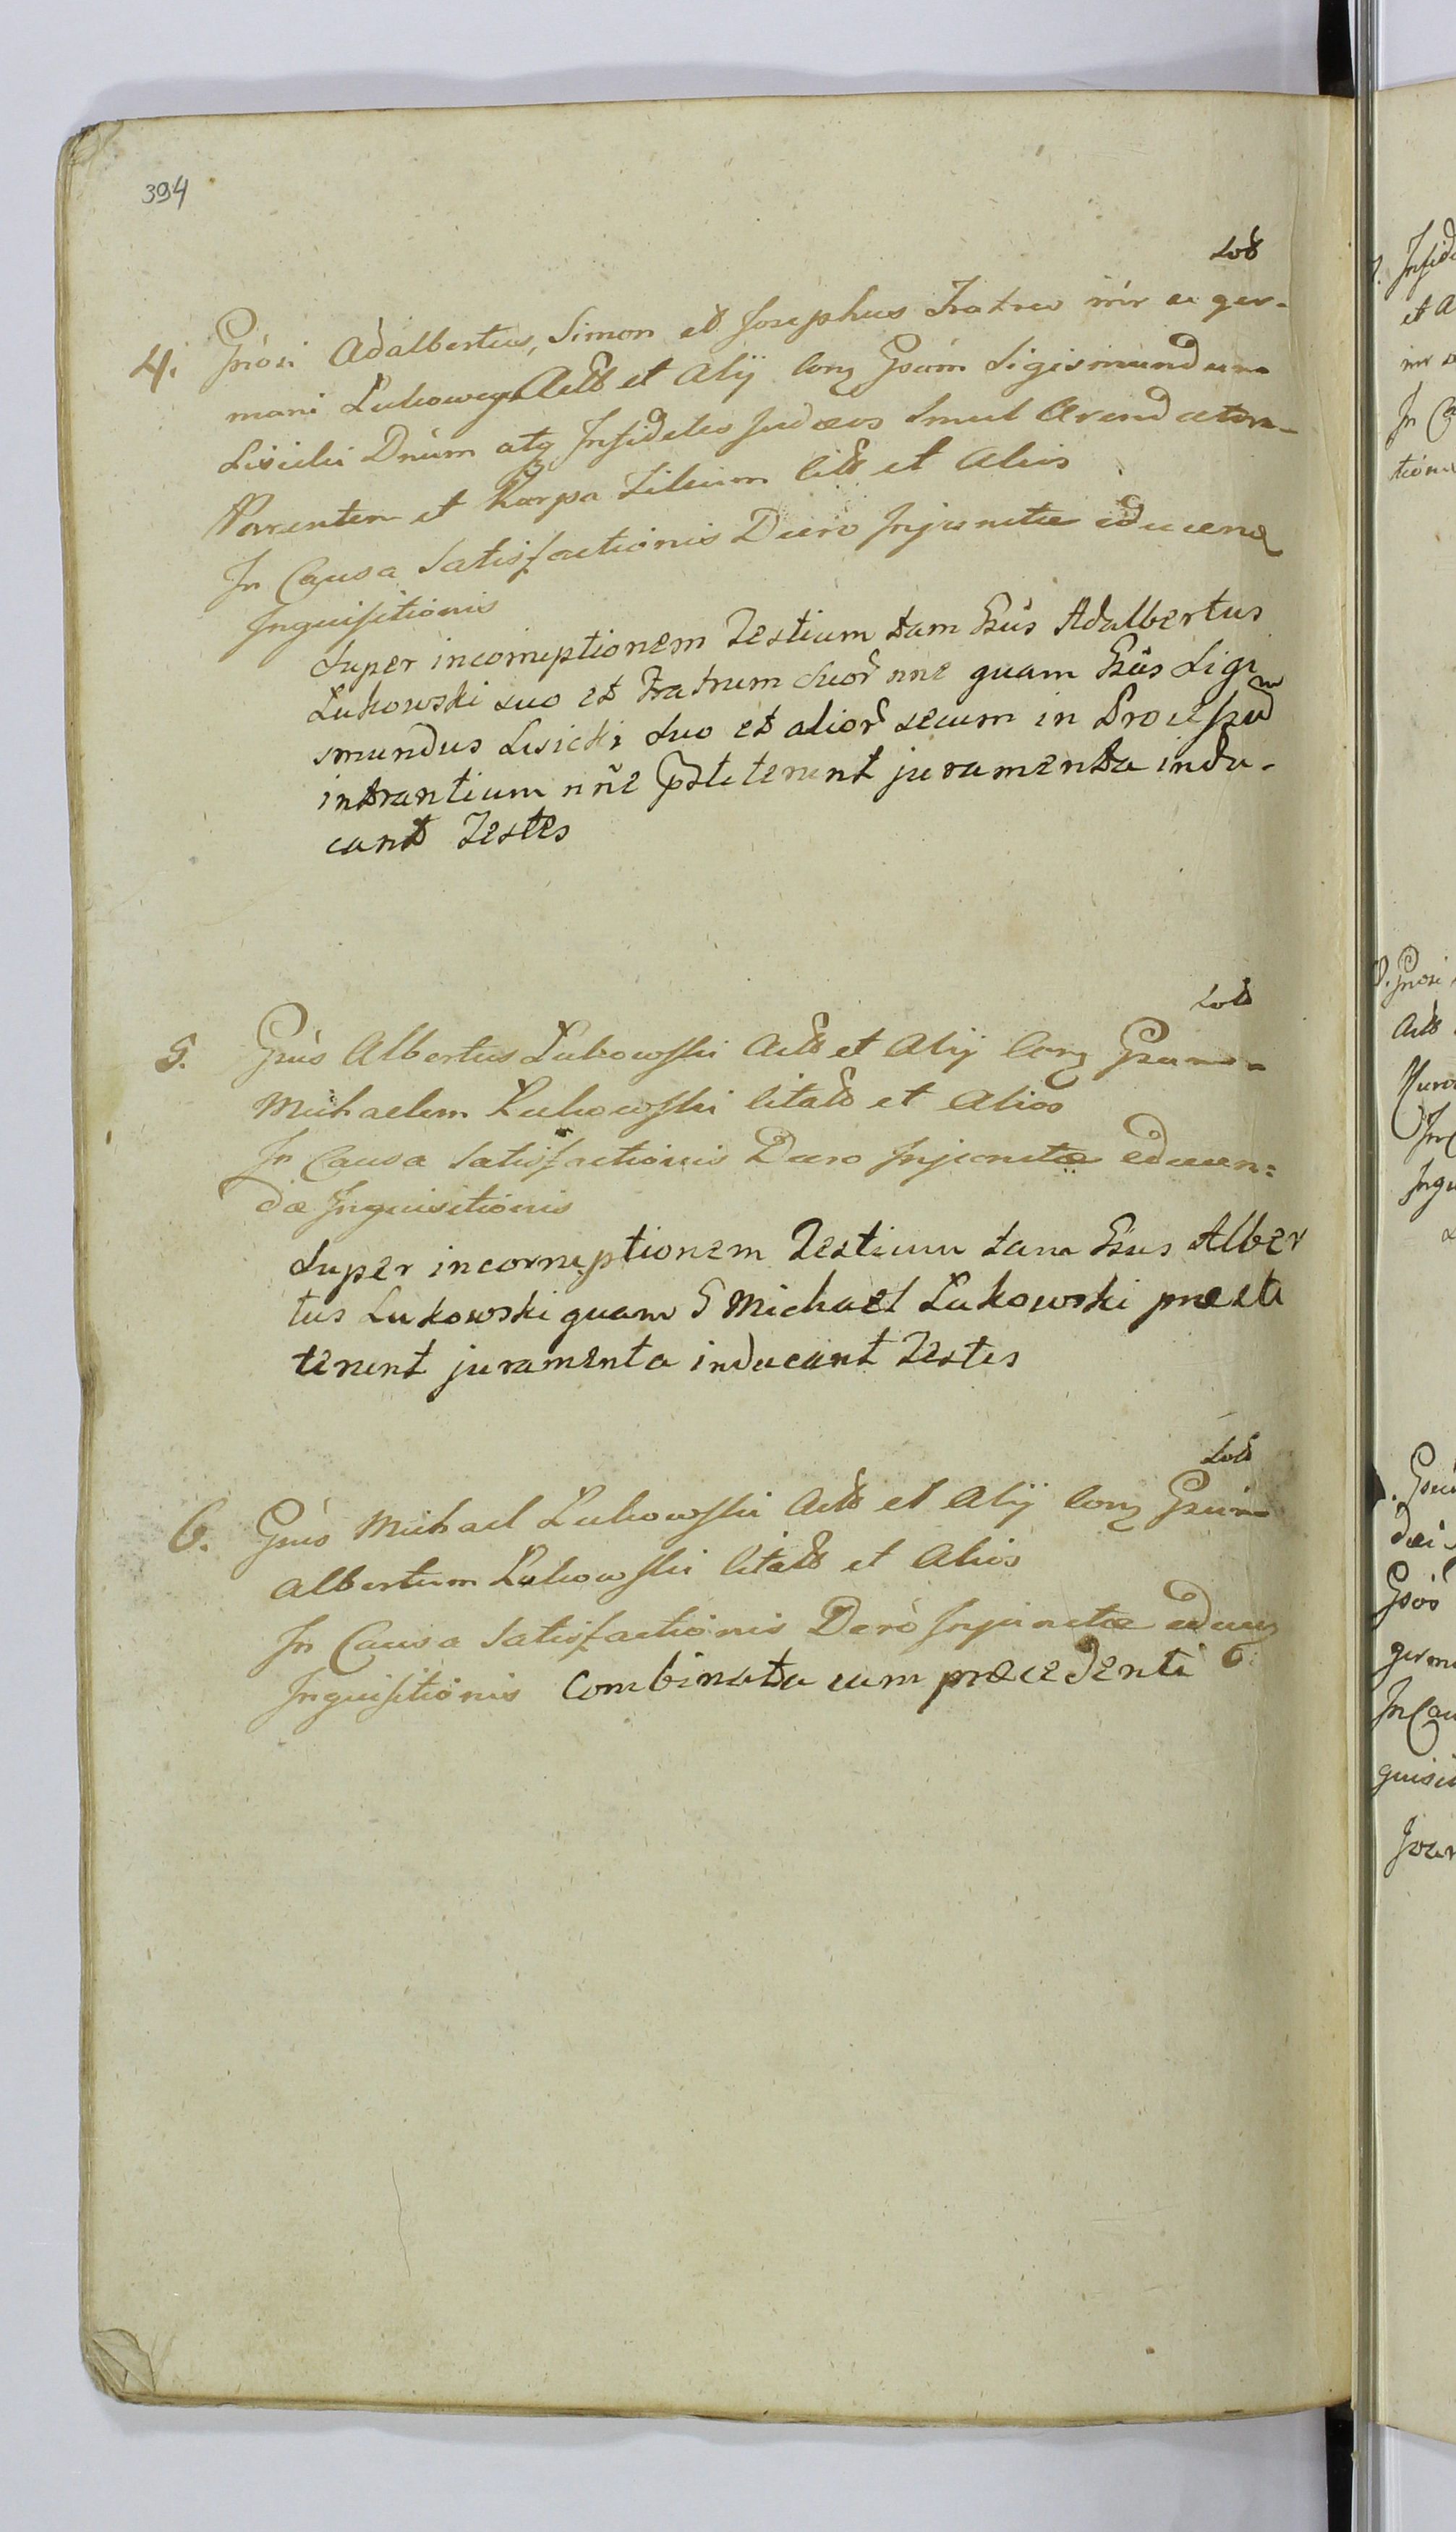 394
Lod
4. Gnósi Adalbertus, Simon et Josephus Fratres inír ac ger-
mani Lukowscy Actt et Alij Con Gsúm Sigismundum
Lisicki Dnúm atq Infideles Judæos Smul Arendatorem
Parentem et Karpa Filium Citt et Alios
In Causa Satisfactionis Decro Injunctæ educend
Inquisitionis
Super incorruptionem Testium tam Gsús Adalbertus
Lukowski suo et Fratrum suor nne quam Gsús Sigi
smundus Lisicki suo et alior secum in Processum
intrantium nñe pstiterunt juramenta indu-
cant Testes
Lod
5. Gnús Albertus Lukowski Actt et Alij Con Gsum
Michaelem Lukowski Citatt et Alios
In Causa Satisfactionis Decro Injunctæ educen:
dæ Inquisitionis
Super incorruptionem Testium tam Gsus Alber
tus Lukowski quam G Michael Lukowski præsti
terunt juramenta inducant Testes
Lod
6. Gnús Michael Lukowski Actt et Alij Con Gsúm
Albertum Lukowski Citatt et Alios
In Causa Satisfactionis Decrò Injunctæ educen
Inquisitionis Combinata cum præcedenti